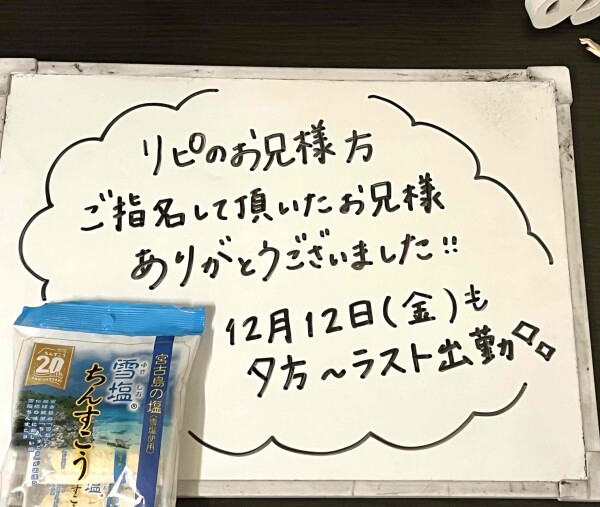 リピのお兄様方
ご指名して頂いたお兄様
ありがとうございました!!
12月12日(金)も
夕方～ラスト出勤
20th
ANNIVERSARY
宮古島の塩(雪塩使用)
雪塩®
ゆきしお
ちんすこう